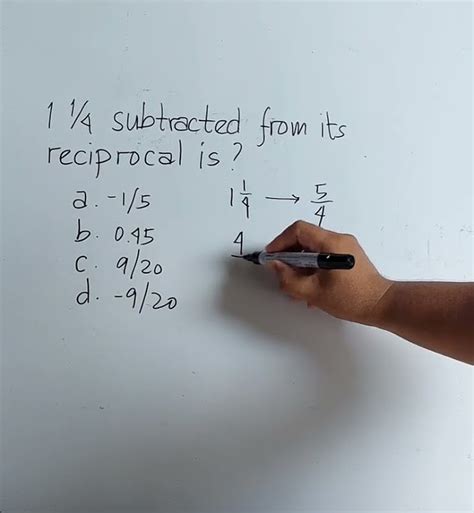 1 1/4 subtracted from its
reciprocal is?
a. -1/5
b. 0.45
c. 9/20
d. -9/20
1 1/4 → 5/4
4